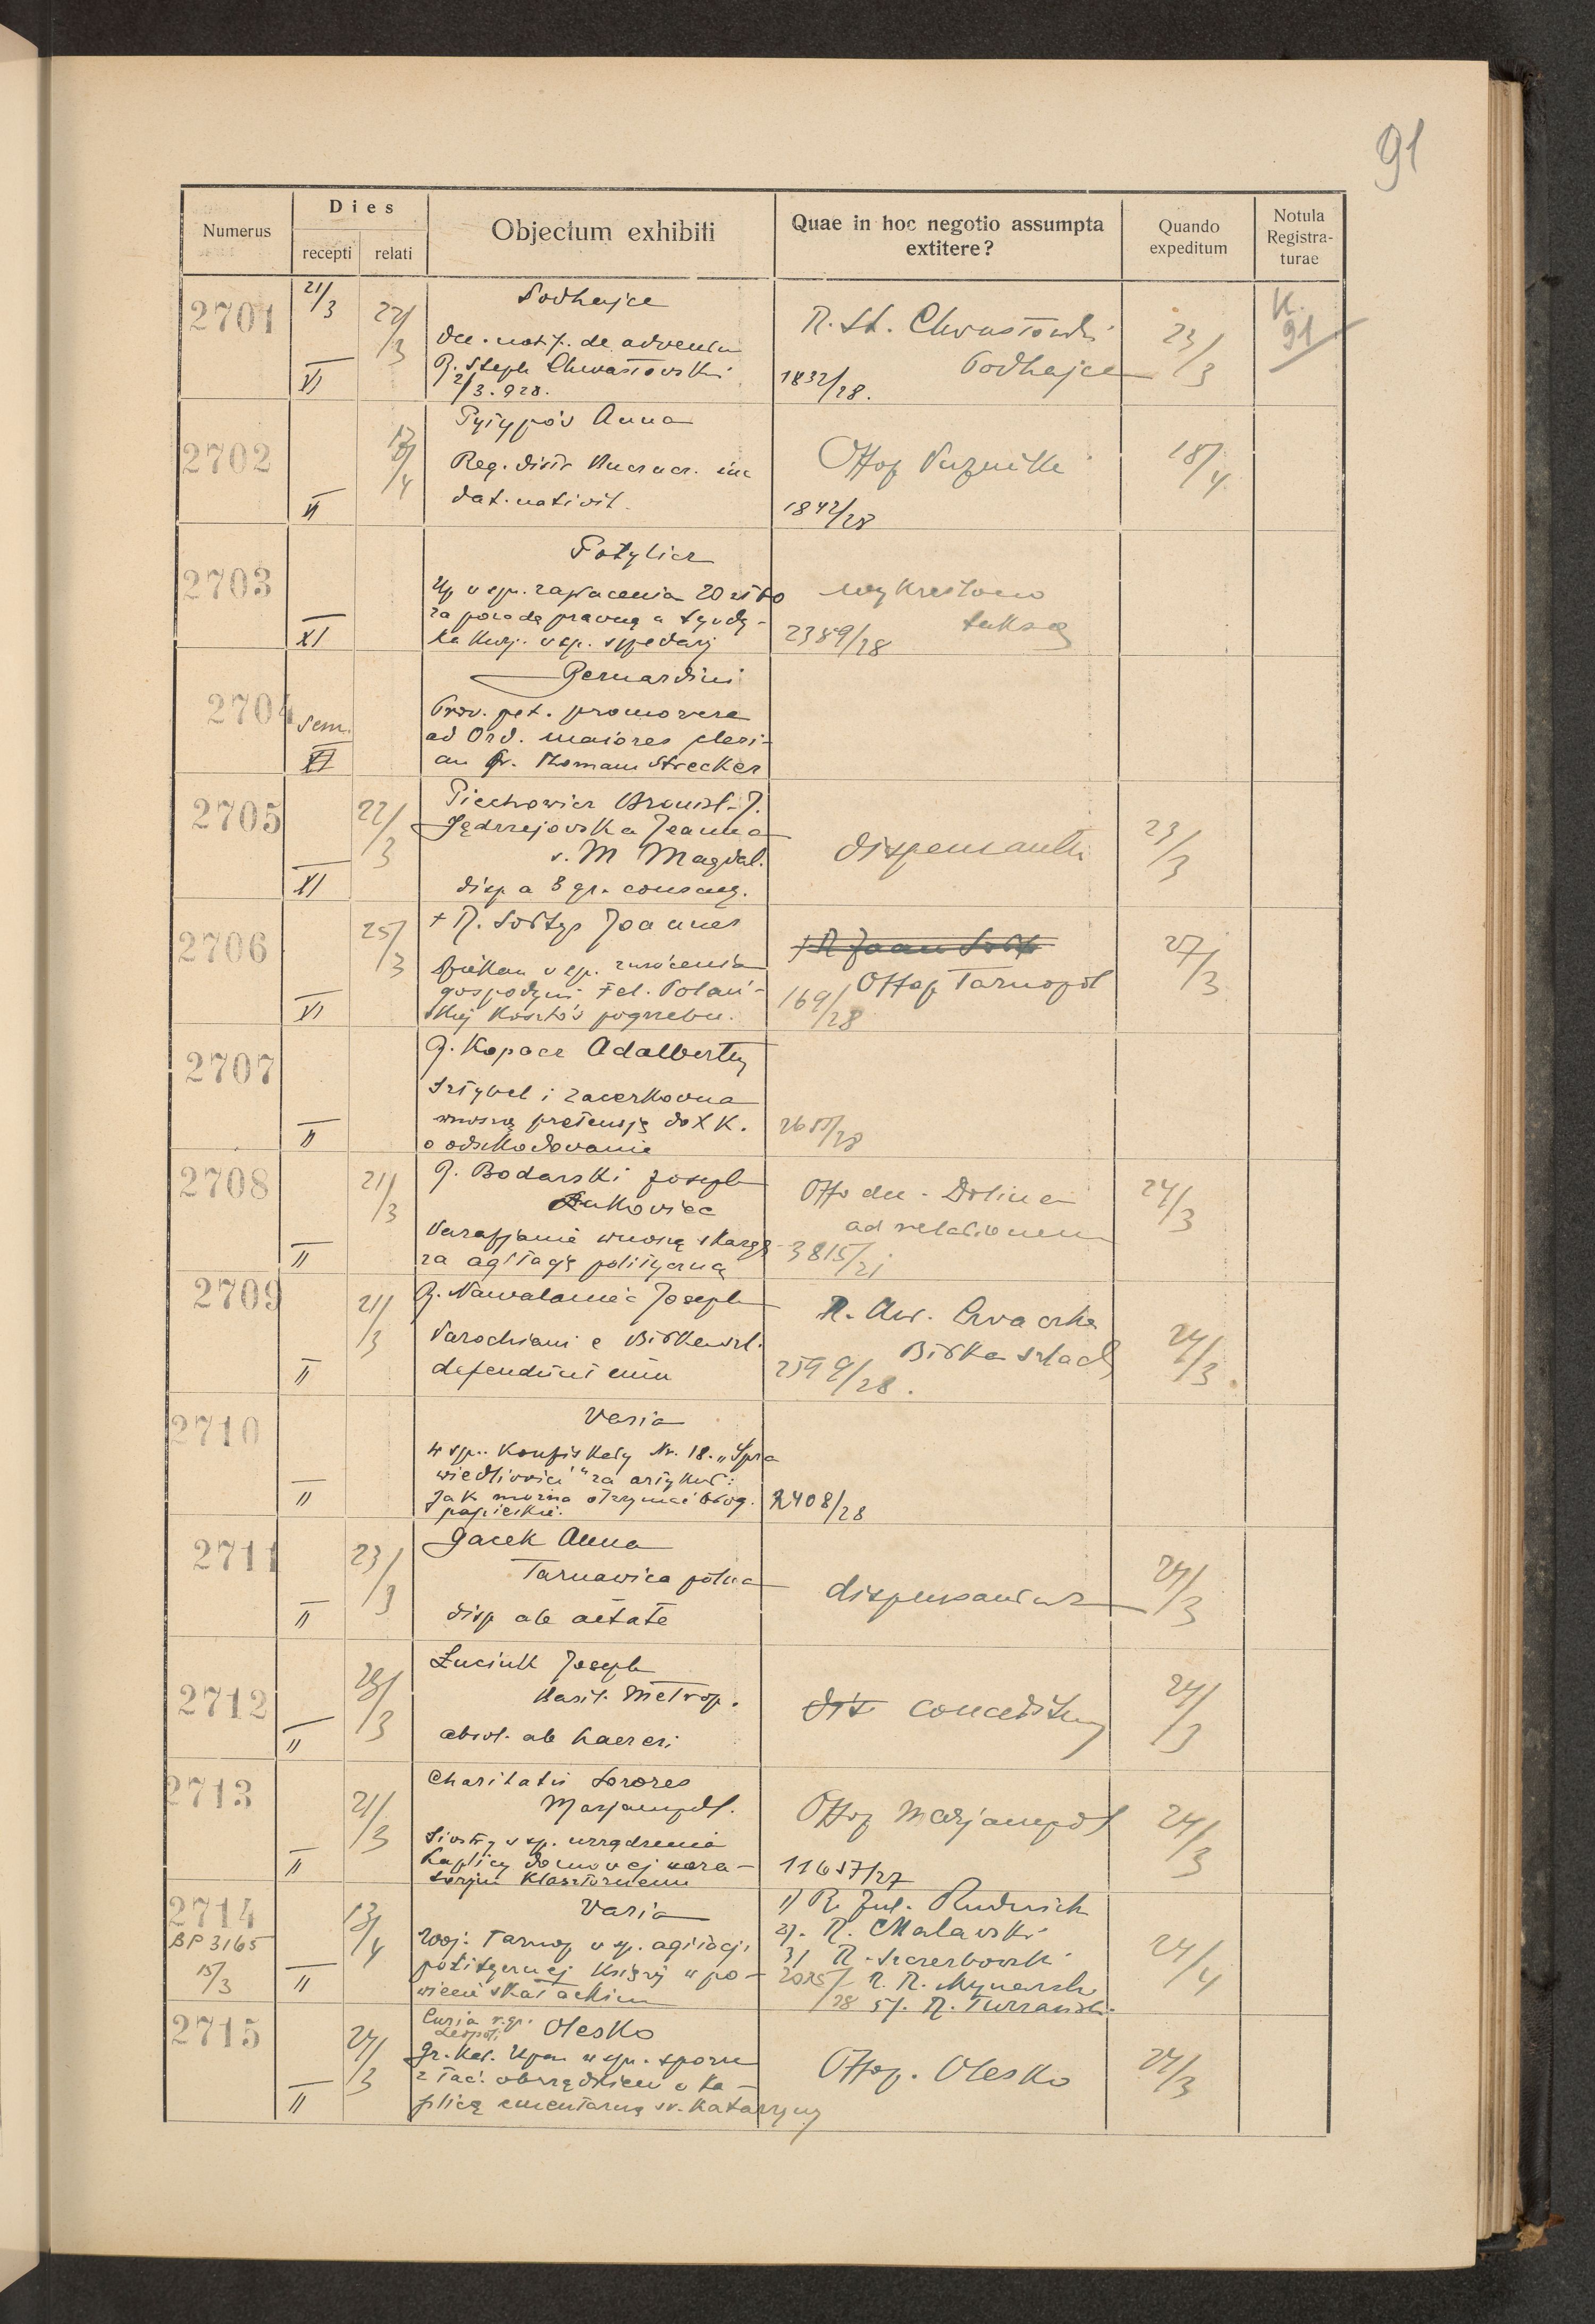 91
Numerus
Dies
recepti
relati
Objectum exhibiti
Quae in hoc negotio assumpta
extitere?
Quando
expeditum
Notula
Registra-
turae
2701
21/3
VI
22/3
Podhajce
Dec. notif. de adventu
R. Steph Chwastowski
2/3.928.
R. St. Chwastowski
Podhajce
1832/28.
23/3
K.
91
2702
II
17/4
Anna
Reg. distr
dat. nativit.
Offop
1842/28
18/4
2703
XI
Potylicz
w sp. zapłacenia 20
za poradę prawną
w sp.
wykreślono
taksę
2389/28
2704
Sem.
XI
Bernardini
Prov. pet. promovere
ad Ord. maiores cleri-
cum fr. Romam Strecker
2705
XI
22/3
Piechowicz Bronisl. J.
Jędrzejowska Joanna
s. M Magdal.
disp a 3 gr. consang.
dispensantur
23/3
2706
VI
25/3
+ R. Sołtys Joannes
Dziekan w sp. zwrócenia
gospodyni Fel. Polań-
skiej kosztów pogrzebu.
Offop Tarnopol
169/28
27/3
2707
II
R. Kopacz Adalbertus
i
wnoszą pretensję do X K.
o odszkodowanie
2655/28
2708
II
21/3
R. Bodarski Joseph
Łukowiec
Parafjanie wnoszą skargę
za agitację polityczną
Offo dec. Dolina
ad relationem
3815/21
24/3
2709
II
21/3
R. Nawalaniec Joseph
Parochiani e Biłka szl.
defendunt eum
R. Ant.
Biłka szlach
2599/28.
24/3
2710
II
Varia
w sp. Konfiskaty Nr. 18. „Spra
wiedliwości" za artykuł:
Jak można otrzymać błog.
papieskie.
2408/28
2711
II
23/3
Jacek Anna
Tarnawica polna
disp ab aetate
dispensantur
24/3
2712
II
23/3
Łuciuk Joseph
Basil. Metrop.
absol. ab haeresi
conceditur
24/3
2713
II
21/3
Charitatis Sorores
Marjampol.
Siostry w sp. urządzenia
kaplicy domowej
klasztornemu
Offop Marjampol
11657/27
24/3
2714
BP 3165
15/3
II
13/4
Varia
Woj. Tarnop w sp. agitacji
politycznej księży w po-
wiecie skałackim
1/ R. Jul. Rudnick
2/. R. Malawski
3/ R. Szczerbowski
R. R. Mynarski
5/. R. Turzański.
2025/28
24/4
2715
II
24/3
Curia r.gr.
Leopol. Olesko
Gr. kat. w sp. sporu
z łac. obrządkiem o ka-
plicę cmentarną św. Katarzyny
Offop. Olesko
24/3